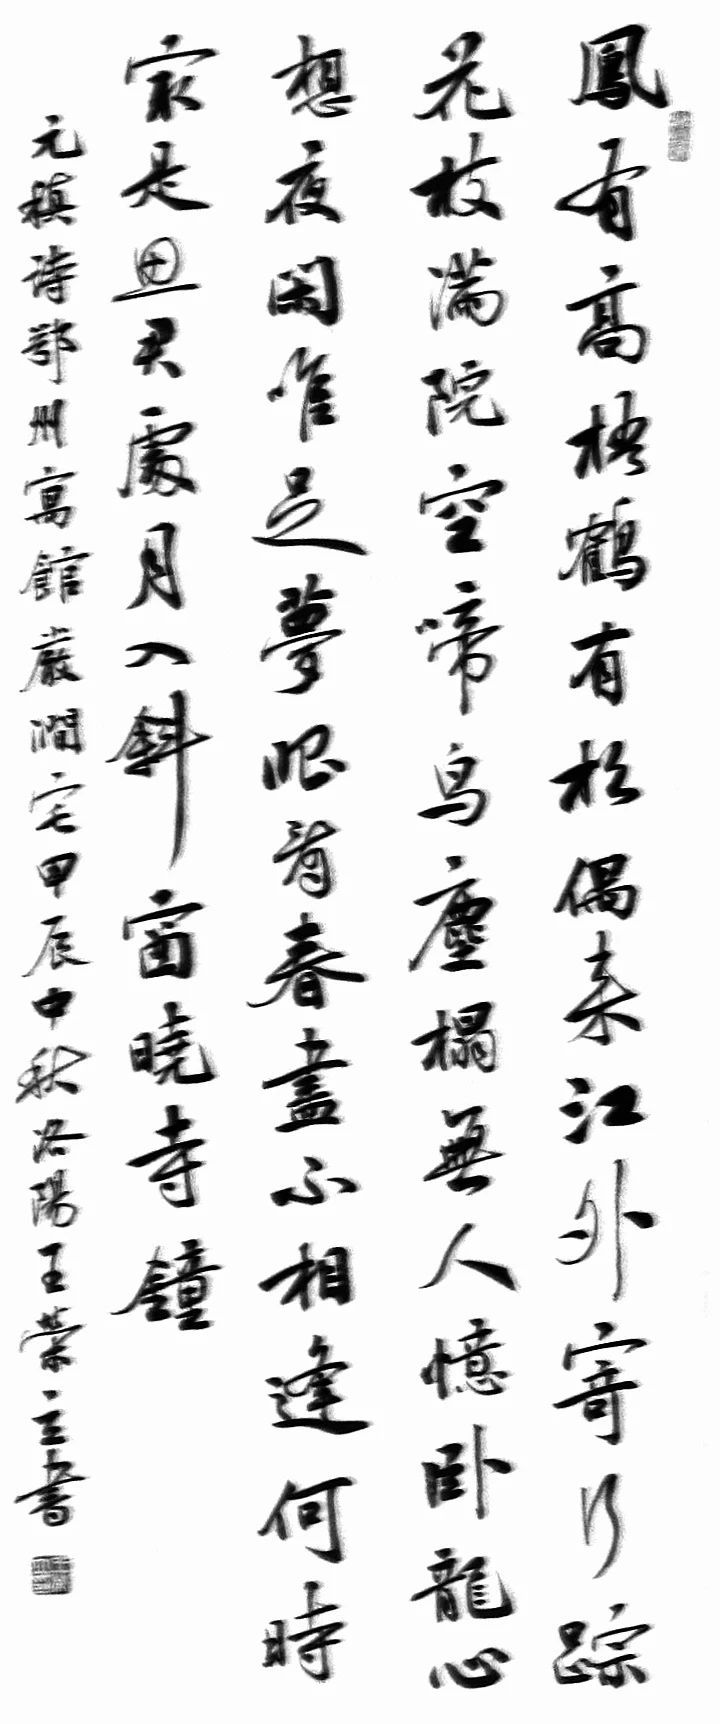 鳳有高梧鶴有松偶来江外寄行踪
花枝滿院空啼鳥塵榻無人憶卧龍心
想夜閑唯足夢眼看春盡不相逢何時
㝡是思君處月入斜窗曉寺鐘
元稹詩鄂州寓館嚴澗宅甲辰中秋洛陽王榮立書